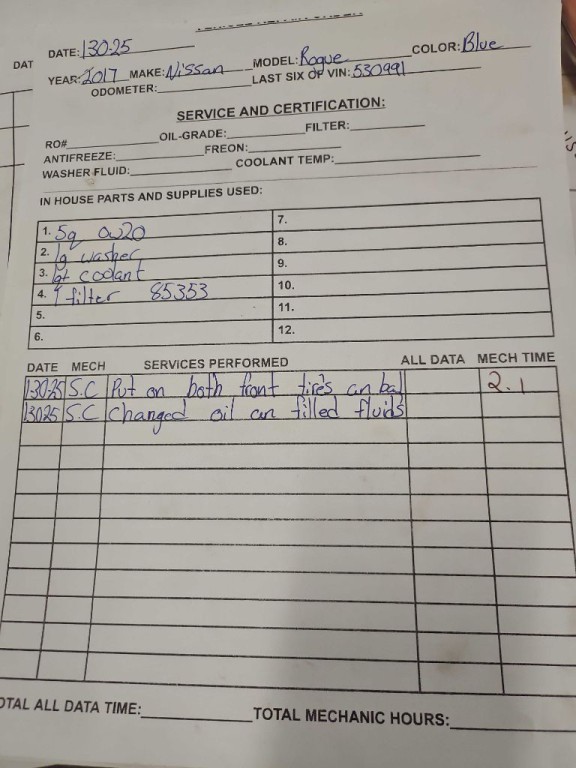 DAT
DATE: 13025
YEAR: 2017 MAKE: Nissan MODEL: Rogue COLOR: Blue
ODOMETER: LAST SIX OF VIN: 530991
SERVICE AND CERTIFICATION:
RO# OIL-GRADE: FILTER:
ANTIFREEZE: FREON:
WASHER FLUID: COOLANT TEMP:
IN HOUSE PARTS AND SUPPLIES USED:
1. 5q 0w20 7.
2. 1g washer 8.
3. coolant 9.
4. 1 filter 85353 10.
5. 11.
6. 12.
DATE MECH SERVICES PERFORMED ALL DATA MECH TIME
13025 S.C Put on both front tires an bal 2.1
13025 S.C Changed oil an filled fluids
OTAL ALL DATA TIME: TOTAL MECHANIC HOURS: